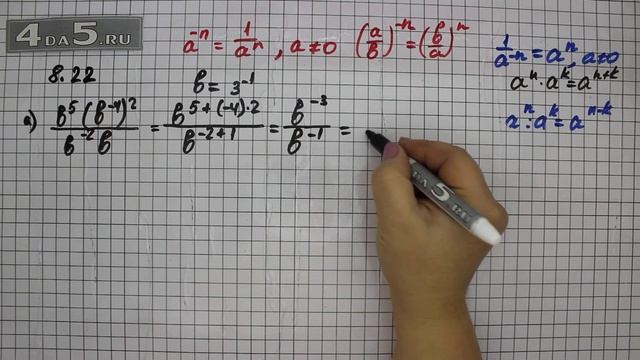 4DA5.RU
a⁻ⁿ = 1/aⁿ, a≠0 (a/b)⁻ⁿ = (b/a)ⁿ
1/a⁻ⁿ = aⁿ, a≠0
aⁿ · aᵏ = aⁿ⁺ᵏ
aⁿ : aᵏ = aⁿ⁻ᵏ
8.22 b = 3⁻¹
a) b⁵(b⁻⁴)²/b⁻²b = b⁵⁺⁽⁻⁴⁾·²/b⁻²⁺¹ = b⁻³/b⁻¹ =
4DA5.RU